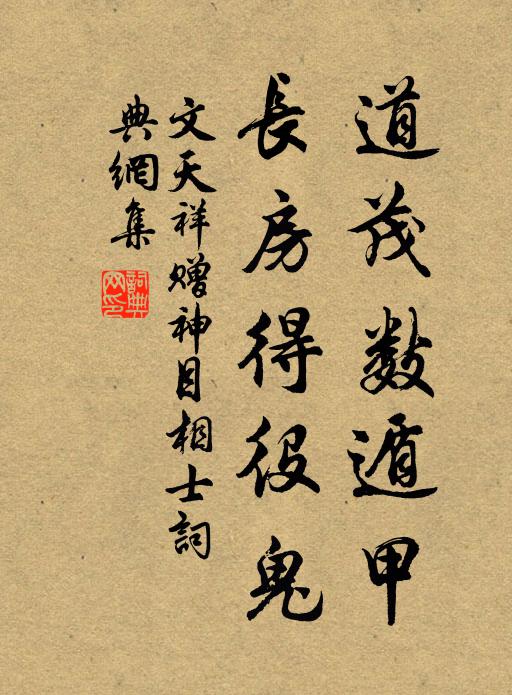 道茂數遁甲
長房得役鬼
文天祥贈神目相士詞
典網集
詞典网印